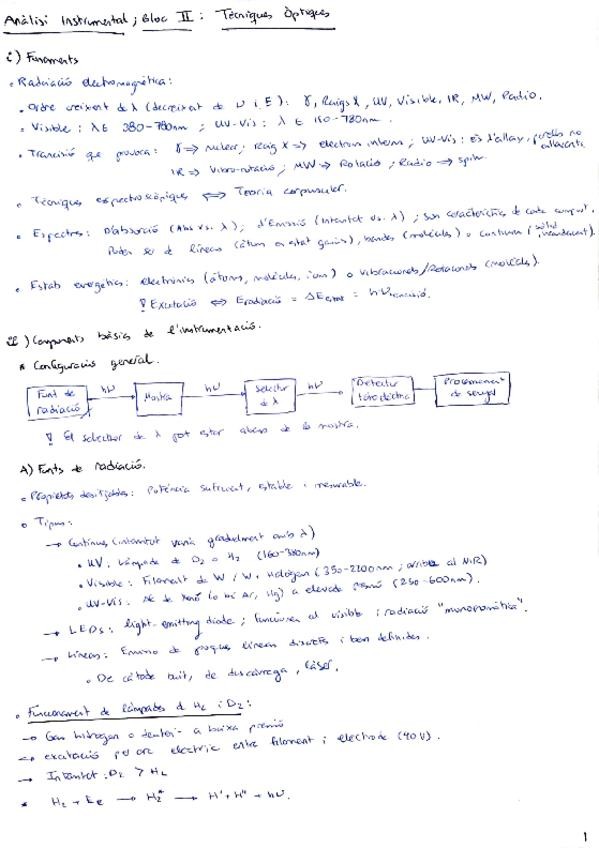 Anàlisi Instrumental; Bloc II: Tècniques Òptiques
i) Fonaments
• Radiació electromagnètica:
• Ordre creixent de λ (decreixent de ν i E): γ, Raigs X, UV, Visible, IR, MW, Radio.
• Visible: λ ∈ 380-780nm; UV-Vis: λ ∈ 180-780nm.
• Transició que provoca: γ → nuclear; Raig X → electrons interns; UV-Vis: e⁻s d'enllaç, parells no enllaçants
IR → Vibro-rotació; MW → Rotació; Radio → spin.
• Tècniques espectroscòpiques ⟺ Teoria corpuscular.
• Espectres: D'absorció (Abs vs. λ); d'Emissió (Intensitat vs. λ); són característics de cada compost.
Poden ser de línies (àtoms en estat gasós), bandes (molècules) o continus (sòlid incandescent).
• Estats energètics: electrònics (àtoms, molècules, ions) o vibracionals/Rotacionals (molècules).
! Excitació ⟺ Eradiació = ΔE = hν
ii) Components bàsics de l'instrumentació.
* Configuració general.
Font de radiació hν Mostra hν Selector de λ hν Detector fotoelèctric Processament de senyal
! El selector de λ pot estar abans de la mostra.
A) Fonts de radiació.
• Propietats desitjables: Potència suficient, estable i mesurable.
• Tipus:
→ Contínues (intensitat varia gradualment amb λ)
• UV: Làmpada de D₂ o H₂ (160-380nm)
• Visible: Filament de W / W, Halògen (350-2200nm; arriba al NIR)
• UV-Vis: Xe (o bé Ar, Hg) a elevada pressió (250-600nm).
→ LEDs: light-emitting diode; funcionen al visible i radiació "monocromàtica".
→ Línies: Emissió de poques línies discretes i ben definides.
• De càtode buit, de descàrrega, Làser.
• Funcionament de làmpades d H₂ i D₂:
→ Gas hidrogen o deuteri a baixa pressió
→ excitació per arc elèctric entre filament i elèctrode (40V).
→ Intensitat: D₂ > H₂
* H₂ + Ee → H₂* → H' + H'' + hν.
1